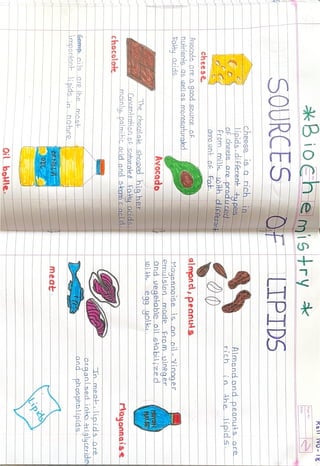 Roll No - 18
*Biochemistry*
SOURCES OF LIPIDS
cheese is a rich in
lipids different types
of cheese are produced
from milk with different
amount of fat
cheese
Avocado are a good source of
nutrients as well as monosaturated
fatty acids.
Avocado
The chocolate showed higher
Concentration of saturated fatty acids
mainly palmitic acid and stearic acid
chocolate
oils are the most
important lipids in nature.
OIL
Oil bottle.
Almond and peanuts are
rich in the lipids.
almond, peanuts
Mayonnaise is an oil-vinager
emulsion made from vineger
and vegetable oil stabilized
with egg yolk.
Mayonnaise
In meat lipids are
organised into triglyceride
and phospholipids.
meat
Lipids